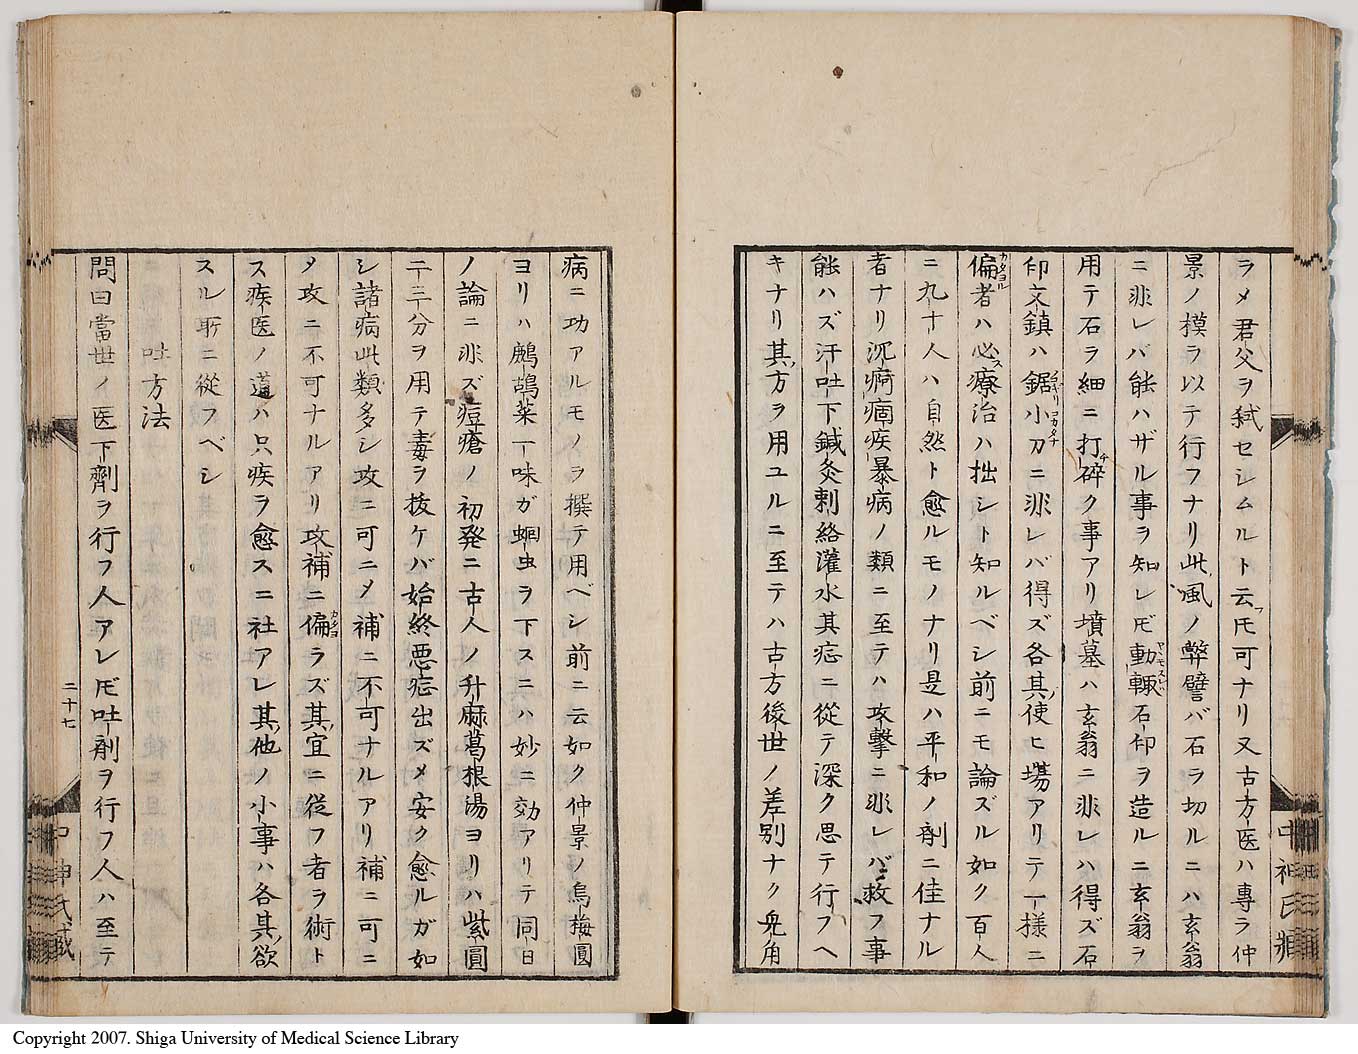 ラメ君父ヲ弑セシムルト云フ𪜈可ナリ又古方医ハ專ラ仲
景ノ模ヲ以テ行フナリ此風ノ弊譬バ石ヲ切ルニハ玄翁
ニ非レバ能ハザル事ヲ知レ𪜈動輙石仰ヲ造ルニ玄翁ヲ
用テ石ヲ細ニ打チ碎ク事アリ墳墓ハ玄翁ニ非レハ得ズ石
仰文鎮ハ鋸小刀ニ非レバ得ズ各其ノ使ヒ塲アリテ一様ニ
偏者ハ必ス療治ハ拙シト知ルベシ前ニモ論ズル如ク百人
ニ九十人ハ自然ト愈ルモノナリ是ハ平和ノ剤ニ佳ナル
者ナリ沉痾痼疾暴病ノ類ニ至テハ攻撃ニ非レバ救フ事
能ハズ汗吐下鍼灸刺絡灌水其症ニ從テ深ク思テ行フヘ
キナリ其ノ方ヲ用ユルニ至テハ古方後世ノ差别ナク兎角
中神氏藏
病ニ功アルモノヲ撰テ用ベシ前ニ云如ク仲景ノ烏梅圓
ヨリハ鷓鴣菜一味ガ蛔虫ヲ下スニハ妙ニ効アリテ同日
ノ論ニ非ズ痘瘡ノ初発ニ古人ノ升麻葛根湯ヨリハ紫圓
二三分ヲ用テ毒ヲ拔ケバ始終惡症出ズメ安ク愈ルガ如
シ諸病此類多シ攻ニ可ニメ補ニ不可ナルアリ補ニ可ニ
メ攻ニ不可ナルアリ攻補ニ偏ラズ其ノ宜ニ從フ者ヲ術ト
ス疾医ノ道ハ只疾ヲ愈スニ社アレ其ノ他ノ小事ハ各其ノ欲
スル所ニ從フベシ
吐方法
問曰當世ノ医下劑ヲ行フ人アレ𪜈吐剤ヲ行フ人ハ至テ
二十七
中神氏藏
Copyright 2007. Shiga University of Medical Science Library